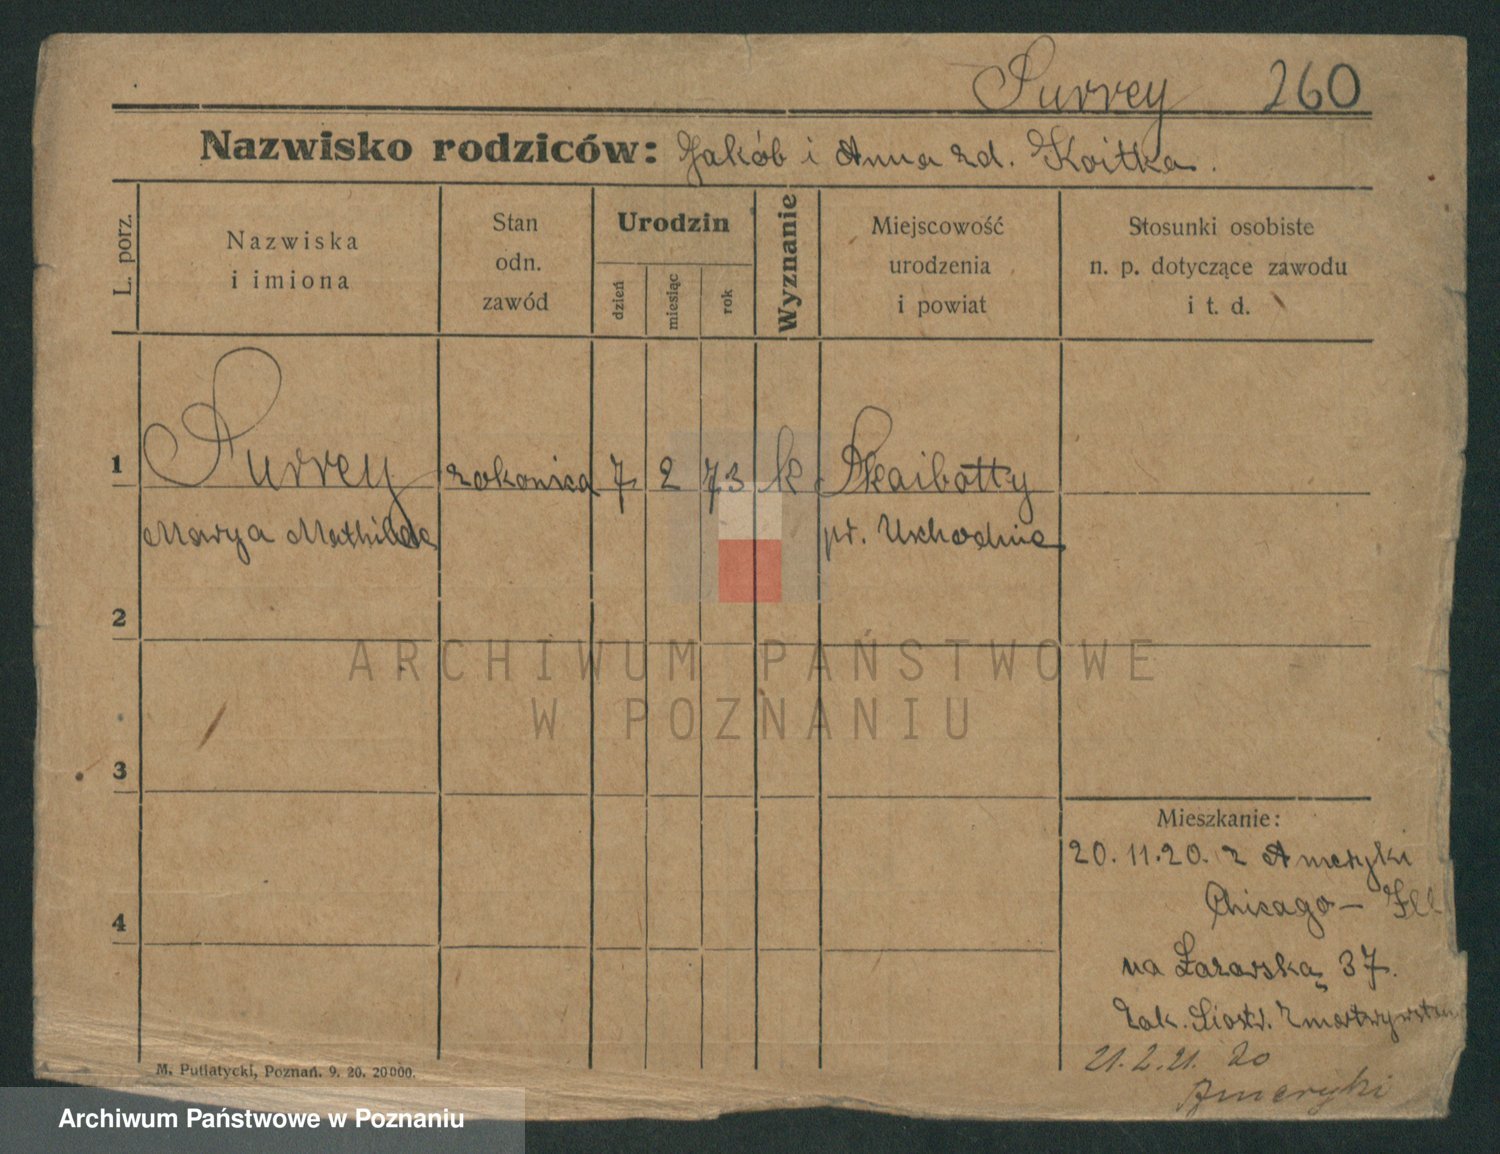 Purrey 260
Nazwisko rodziców: Jakób i Anna zd. Koitka.
L. porz.
Nazwiska
i imiona
Stan
odn.
zawód
Urodzin
dzień
miesiąc
rok
Wyznanie
Miejscowość
urodzenia
i powiat
Stosunki osobiste
n. p. dotyczące zawodu
i t. d.
1 Purrey zakonica 7 2 73 k Skaibotty
Marya Mathilde pr. Uschodnie
2
3
4
Mieszkanie:
20.11.20. z Ameryki
Chicago – Ill
na Łazarską 37.
Zak. Siostr. Zmartwywstan
21.2.21. do
Ameryki
M. Putiatycki, Poznań. 9. 20. 20000.
ARCHIWUM PAŃSTWOWE
W POZNANIU
Archiwum Państwowe w Poznaniu